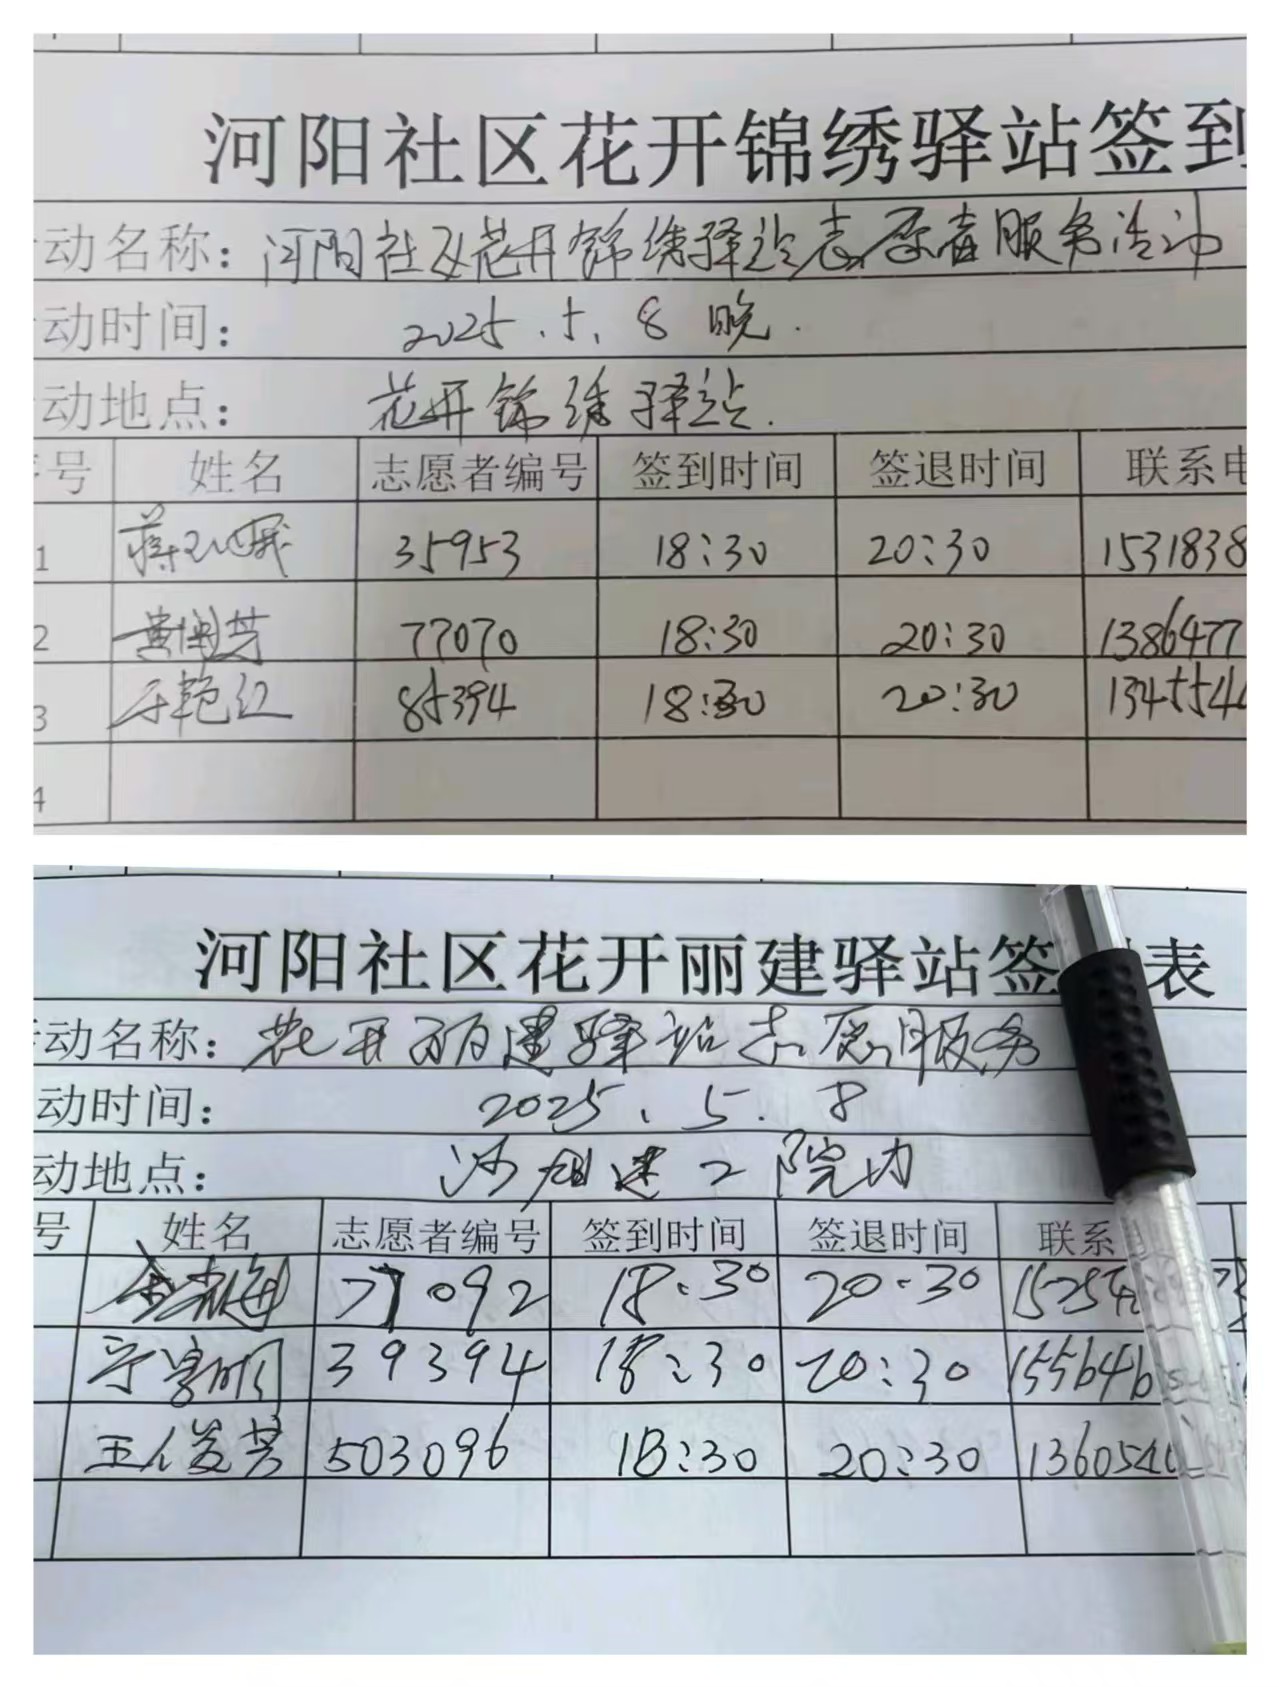 河阳社区花开锦绣驿站签到
动名称: 河阳社区花开锦绣驿站志愿者服务活动
动时间: 2025.5.8 晚.
动地点: 花开锦绣驿站.
号 姓名 志愿者编号 签到时间 签退时间 联系电
1 35953 18:30 20:30 1531838
2 黄闽芳 77070 18:30 20:30 1386477
3 于艳红 85394 18:30 20:30 1345544
4
河阳社区花开丽建驿站签 表
动名称: 花开丽建驿站志愿服务
动时间: 2025.5.8
动地点: 建工院内
号 姓名 志愿者编号 签到时间 签退时间 联系
77092 18:30 20:30 15254
39394 18:30 20:30 155646
王俊芳 503096 18:30 20:30 1360540